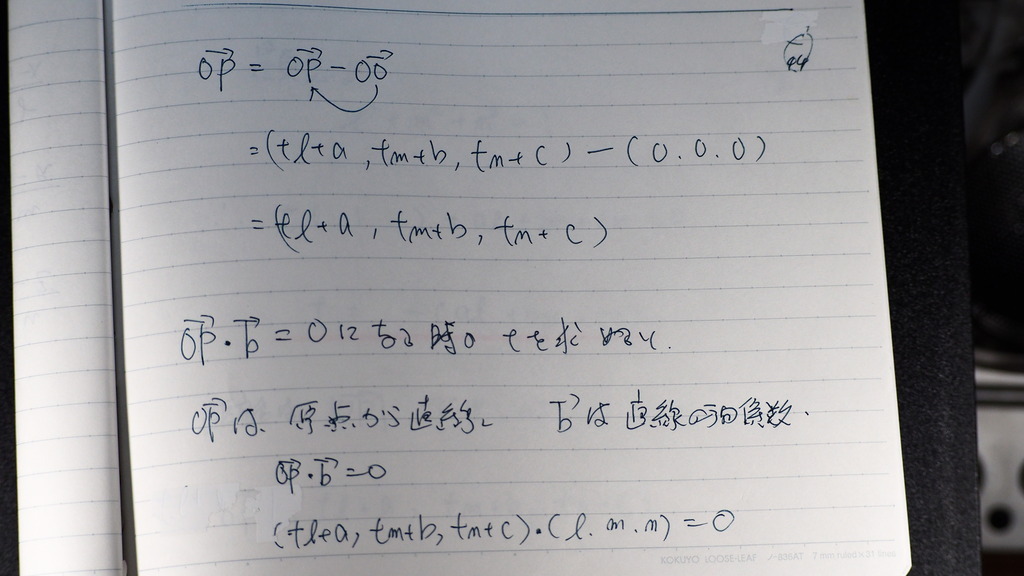 44
OP = OP - OO
= (tl+a, tm+b, tn+c) - (0.0.0)
= (tl+a, tm+b, tn+c)
OP・b = 0になる時の tを求めよ.
OPは、原点から直線に bは直線の 係数.
OP・b = 0
(tl+a, tm+b, tn+c)・(l.m.n) = 0
KOKUYO LOOSE-LEAF ノ-836AT 7 mm ruled × 31 lines